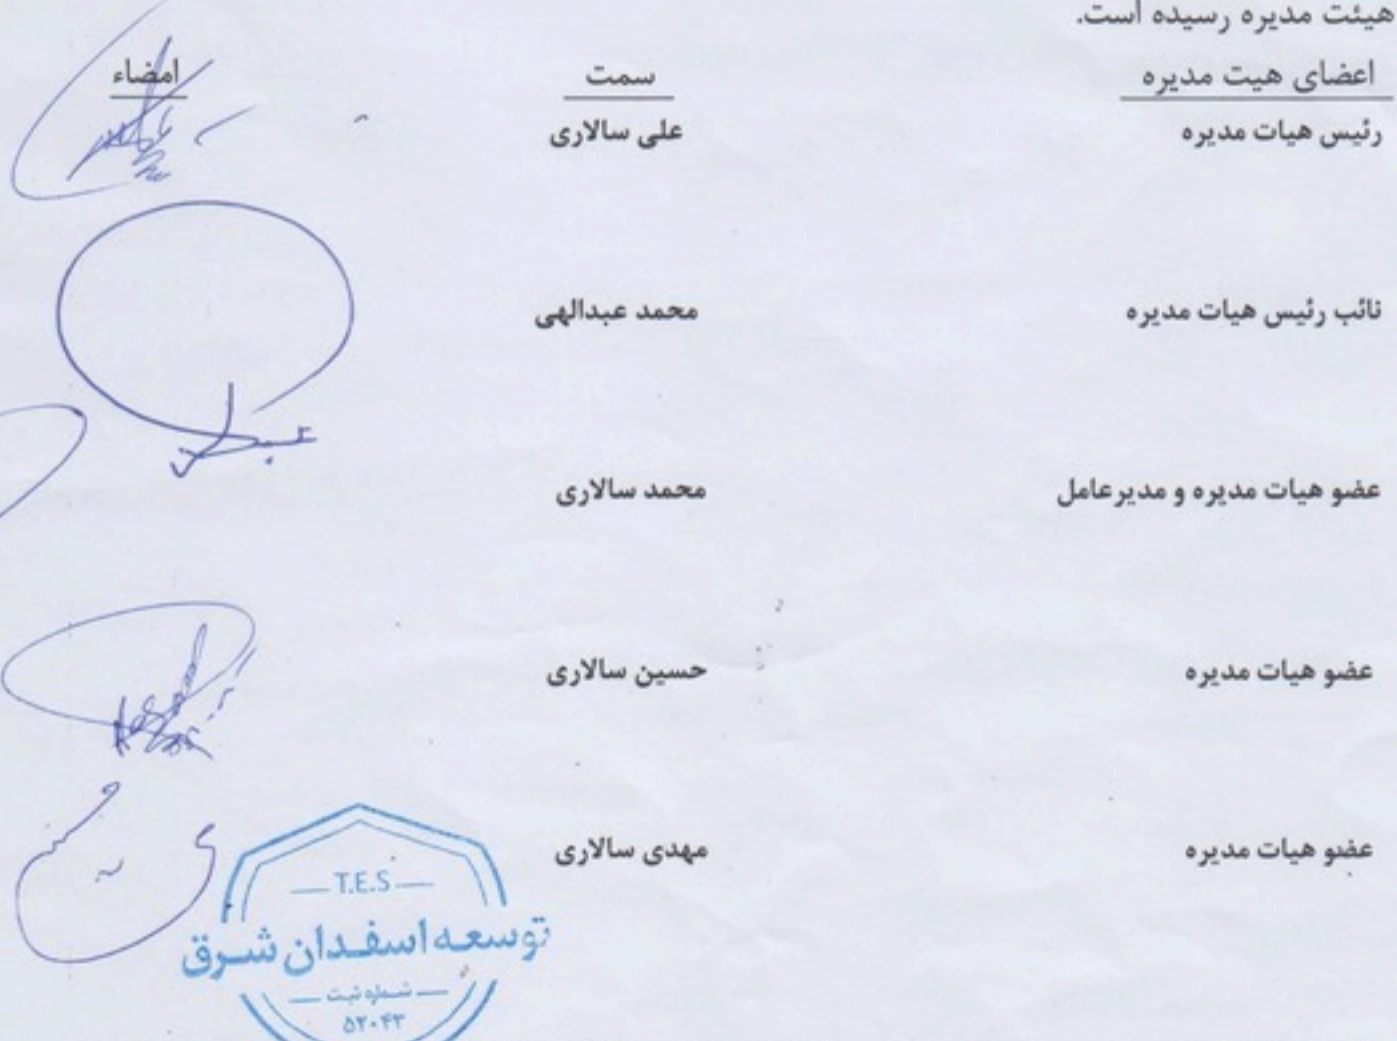 هیئت مدیره رسیده است.
اعضای هیت مدیره سمت امضاء
رئیس هیات مدیره علی سالاری
نائب رئیس هیات مدیره محمد عبدالهی
عضو هیات مدیره و مدیرعامل محمد سالاری
عضو هیات مدیره حسین سالاری
عضو هیات مدیره مهدی سالاری
T.E.S
توسعه اسفدان شرق
شماره ثبت
۵۲۰۴۳